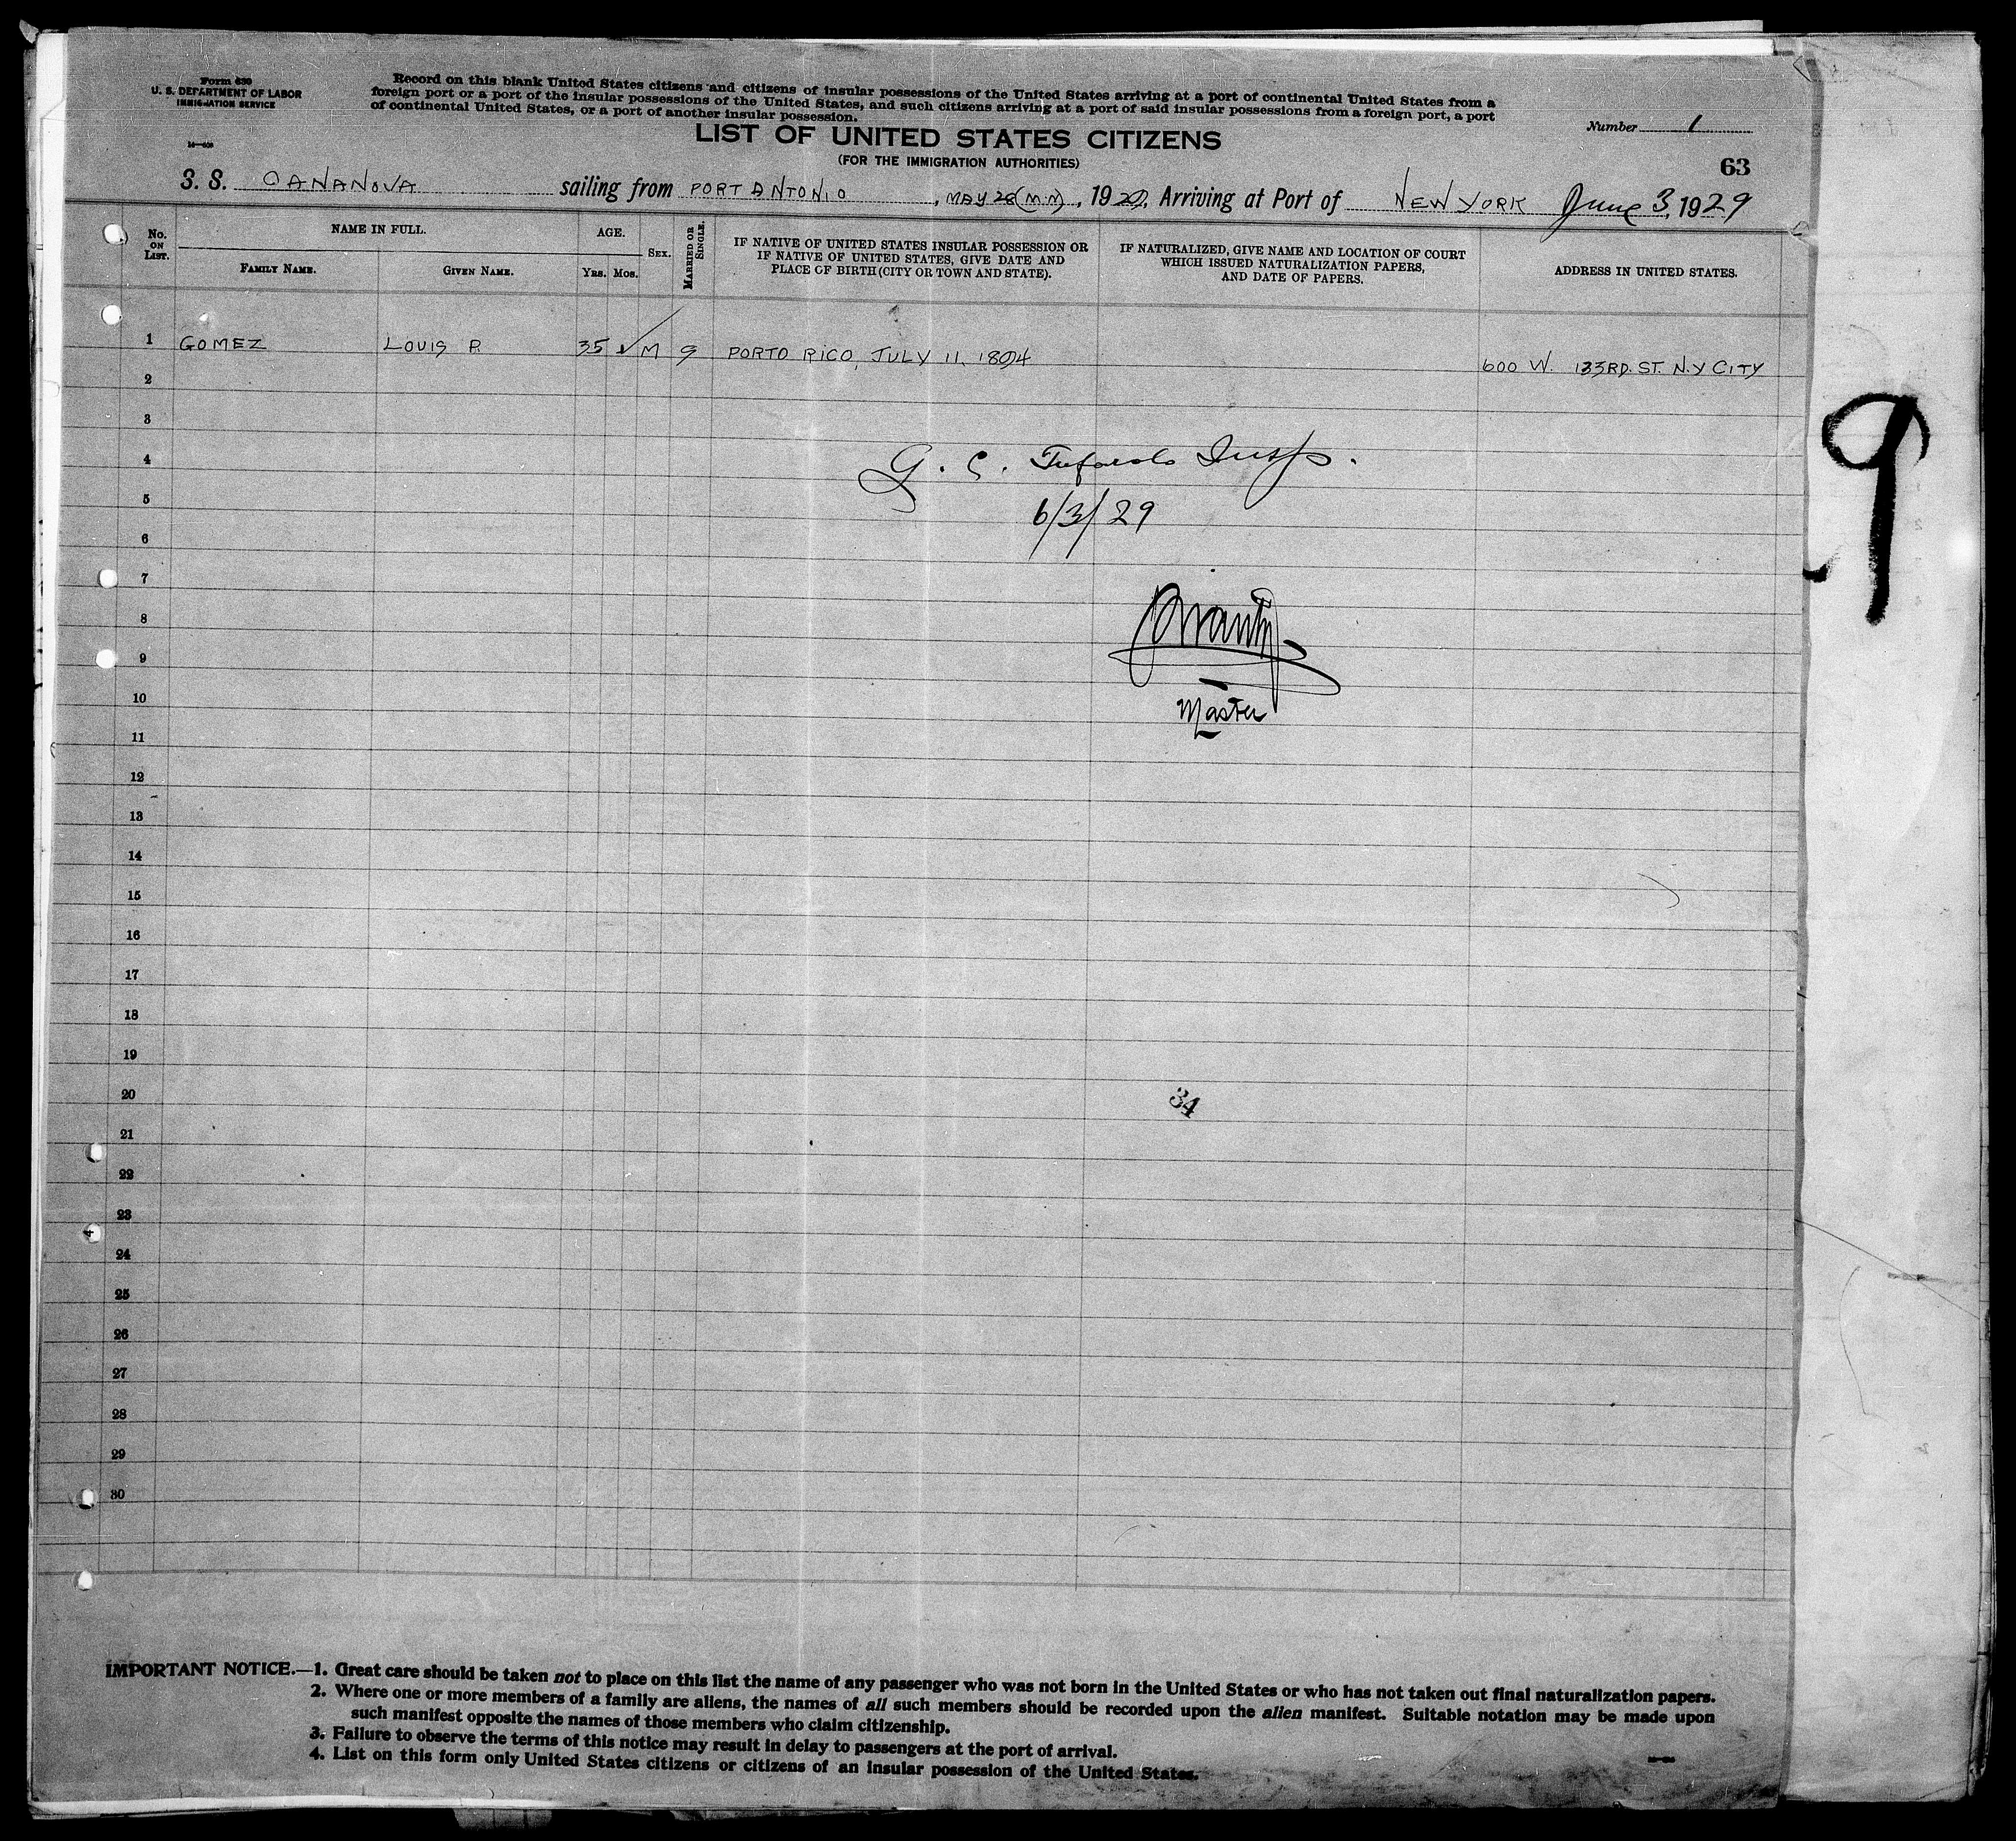 Form 630
U. S. DEPARTMENT OF LABOR
IMMIGRATION SERVICE
Record on this blank United States citizens and citizens of insular possessions of the United States arriving at a port of continental United States from a
foreign port or a port of the insular possessions of the United States, and such citizens arriving at a port of said insular possessions from a foreign port, a port
of continental United States, or a port of another insular possession.
LIST OF UNITED STATES CITIZENS
(FOR THE IMMIGRATION AUTHORITIES)
Number 1
63
S. S. CANANOVA sailing from PORT ANTONIO, MAY 28 (M.N), 1929, Arriving at Port of NEW YORK June 3, 1929
No. ON LIST.
NAME IN FULL.
FAMILY NAME.
GIVEN NAME.
AGE.
YRS. MOS.
SEX.
MARRIED OR SINGLE.
IF NATIVE OF UNITED STATES INSULAR POSSESSION OR
IF NATIVE OF UNITED STATES, GIVE DATE AND
PLACE OF BIRTH (CITY OR TOWN AND STATE).
IF NATURALIZED, GIVE NAME AND LOCATION OF COURT
WHICH ISSUED NATURALIZATION PAPERS,
AND DATE OF PAPERS.
ADDRESS IN UNITED STATES.
1 GOMEZ LOUIS P. 35 M S PORTO RICO, JULY 11, 1894 600 W. 133RD. ST. N.Y CITY
2
3
4
G. C. Insp.
5
6/3/29
6
7
8
9
10
Master
11
12
13
14
15
16
17
18
19
20
34
21
22
23
24
25
26
27
28
29
30
9
IMPORTANT NOTICE.—1. Great care should be taken not to place on this list the name of any passenger who was not born in the United States or who has not taken out final naturalization papers.
2. Where one or more members of a family are aliens, the names of all such members should be recorded upon the alien manifest. Suitable notation may be made upon
such manifest opposite the names of those members who claim citizenship.
3. Failure to observe the terms of this notice may result in delay to passengers at the port of arrival.
4. List on this form only United States citizens or citizens of an insular possession of the United States.